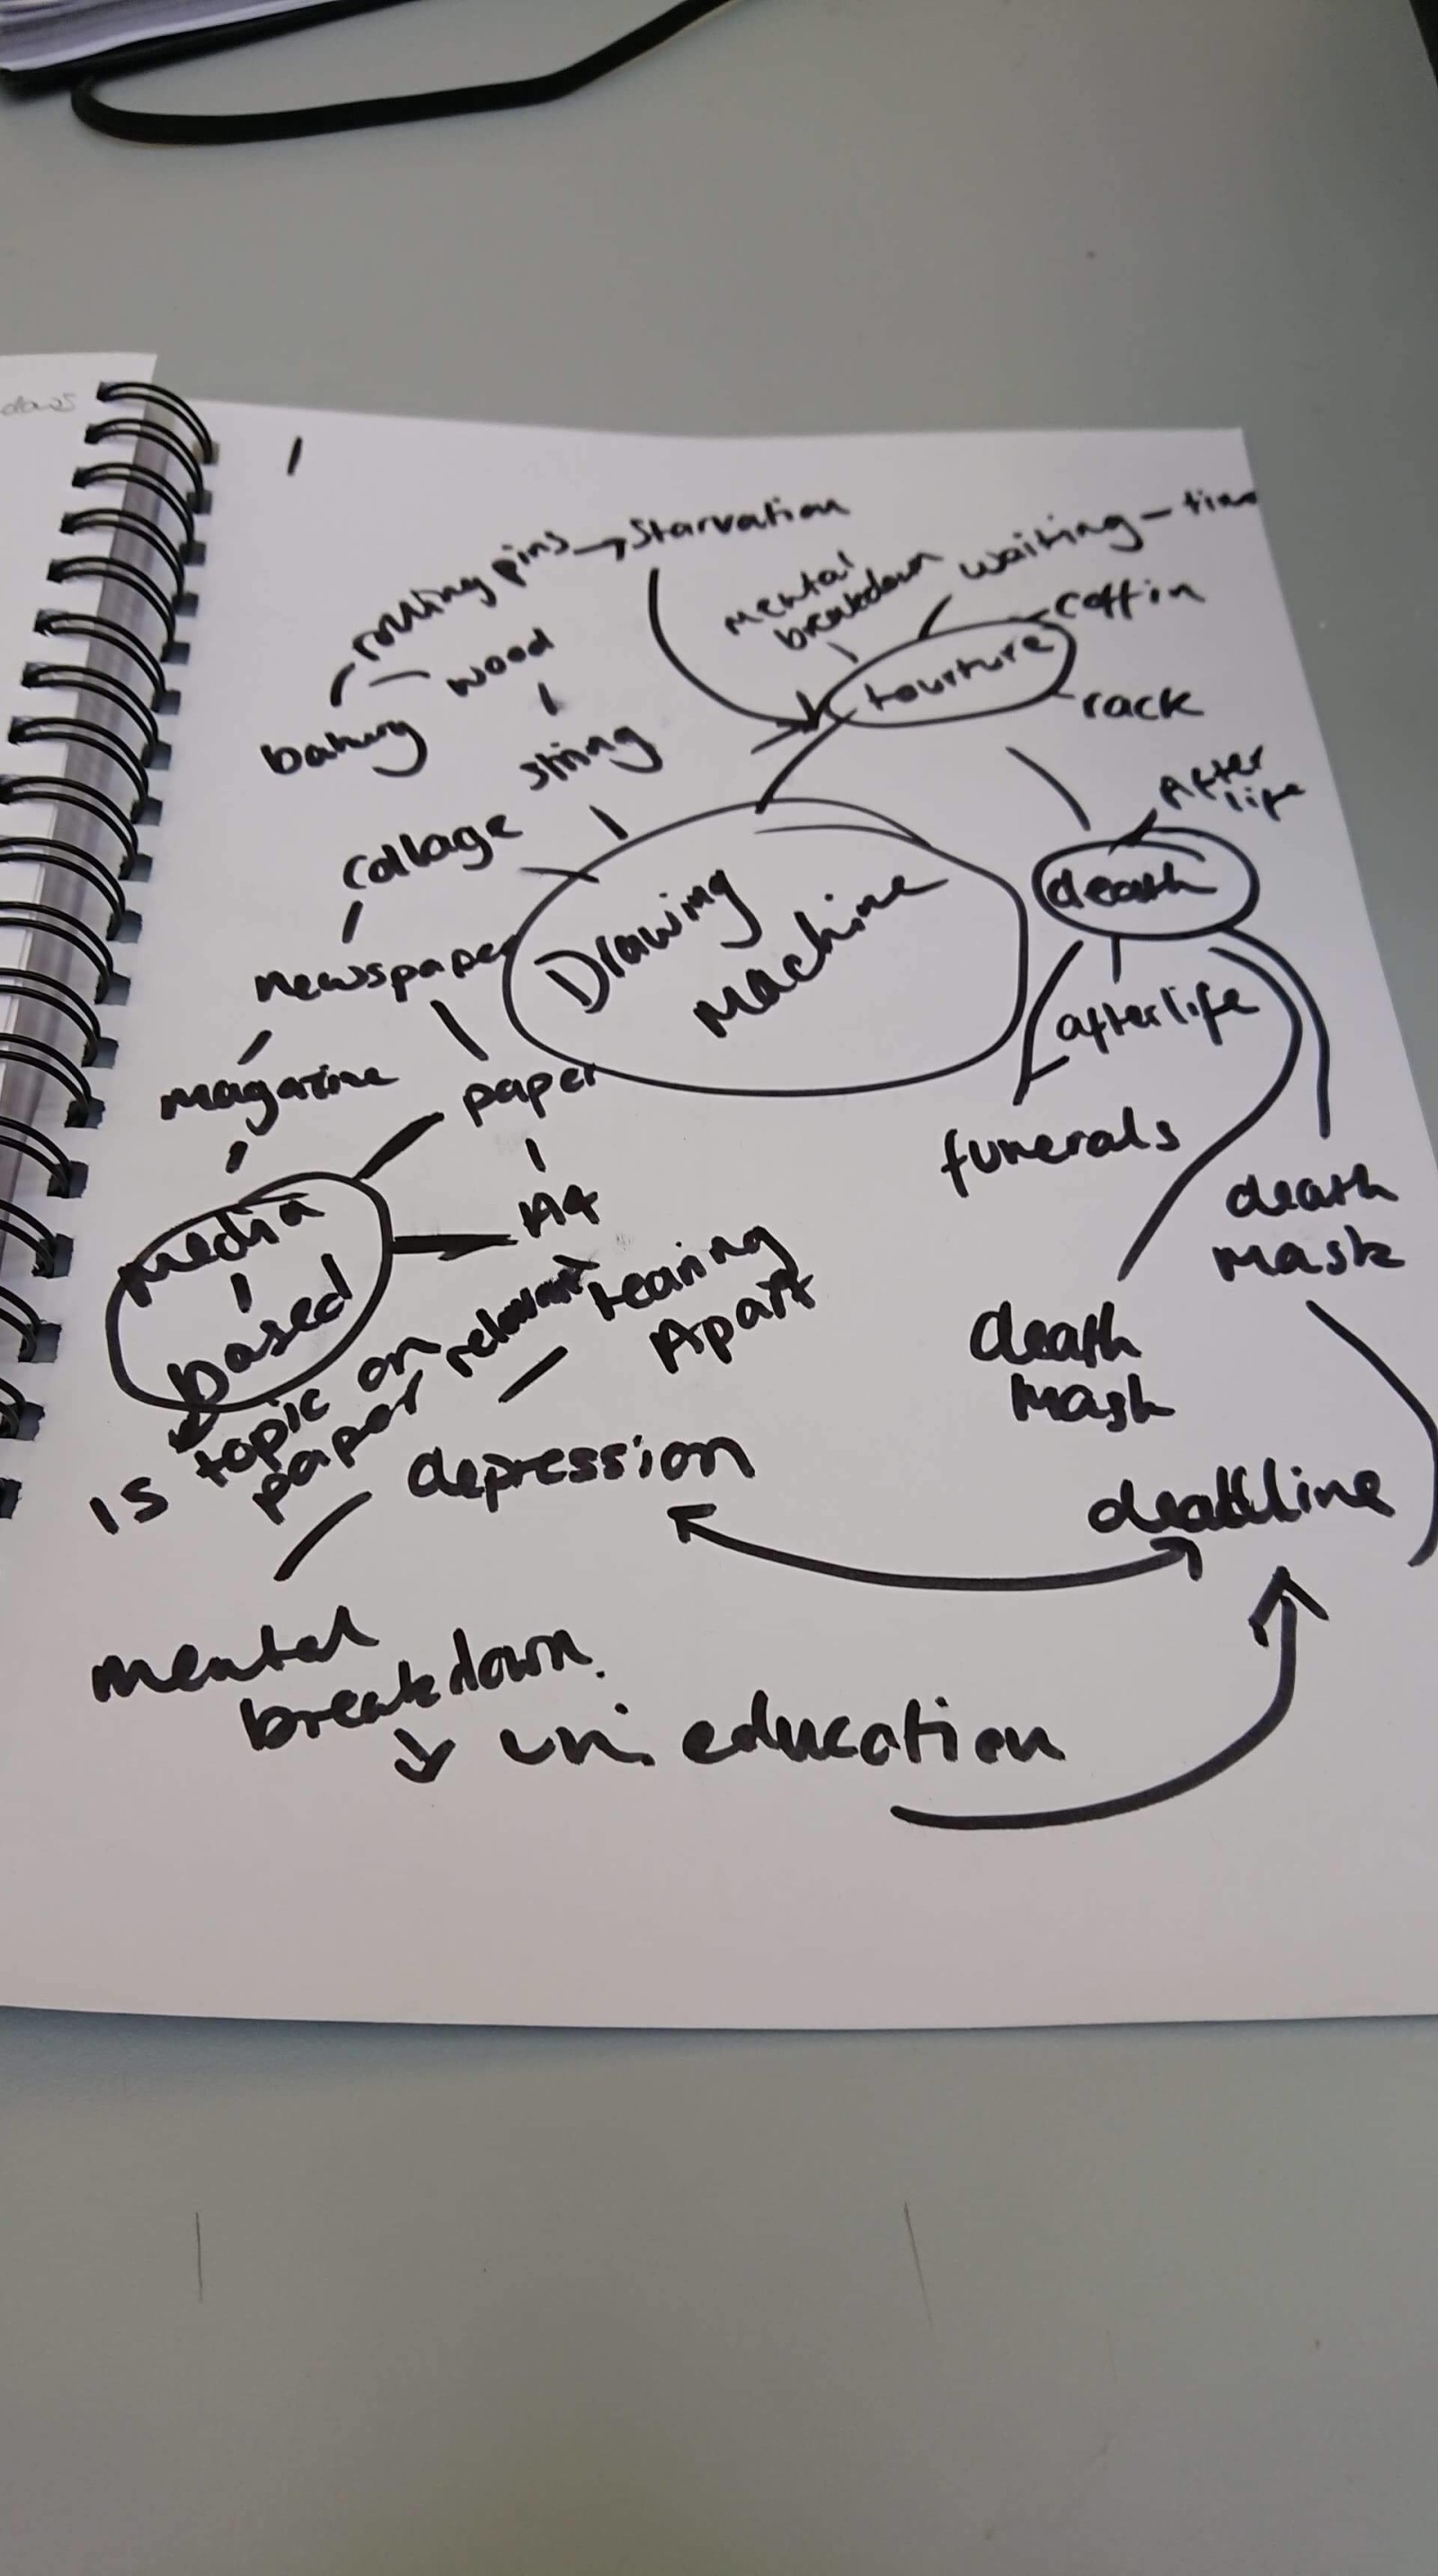 rolling pins → starvation
mental
breakdown
waiting -
coffin
wood
tourture
rack
baking
string
After
life
collage
death
Drawing
Machine
newspaper
afterlife
magazine
paper
funerals
A4
death
mask
media
based
tearing
Apart
is topic on
paper relevant
death
mask
depression
mental
breakdown.
uni education